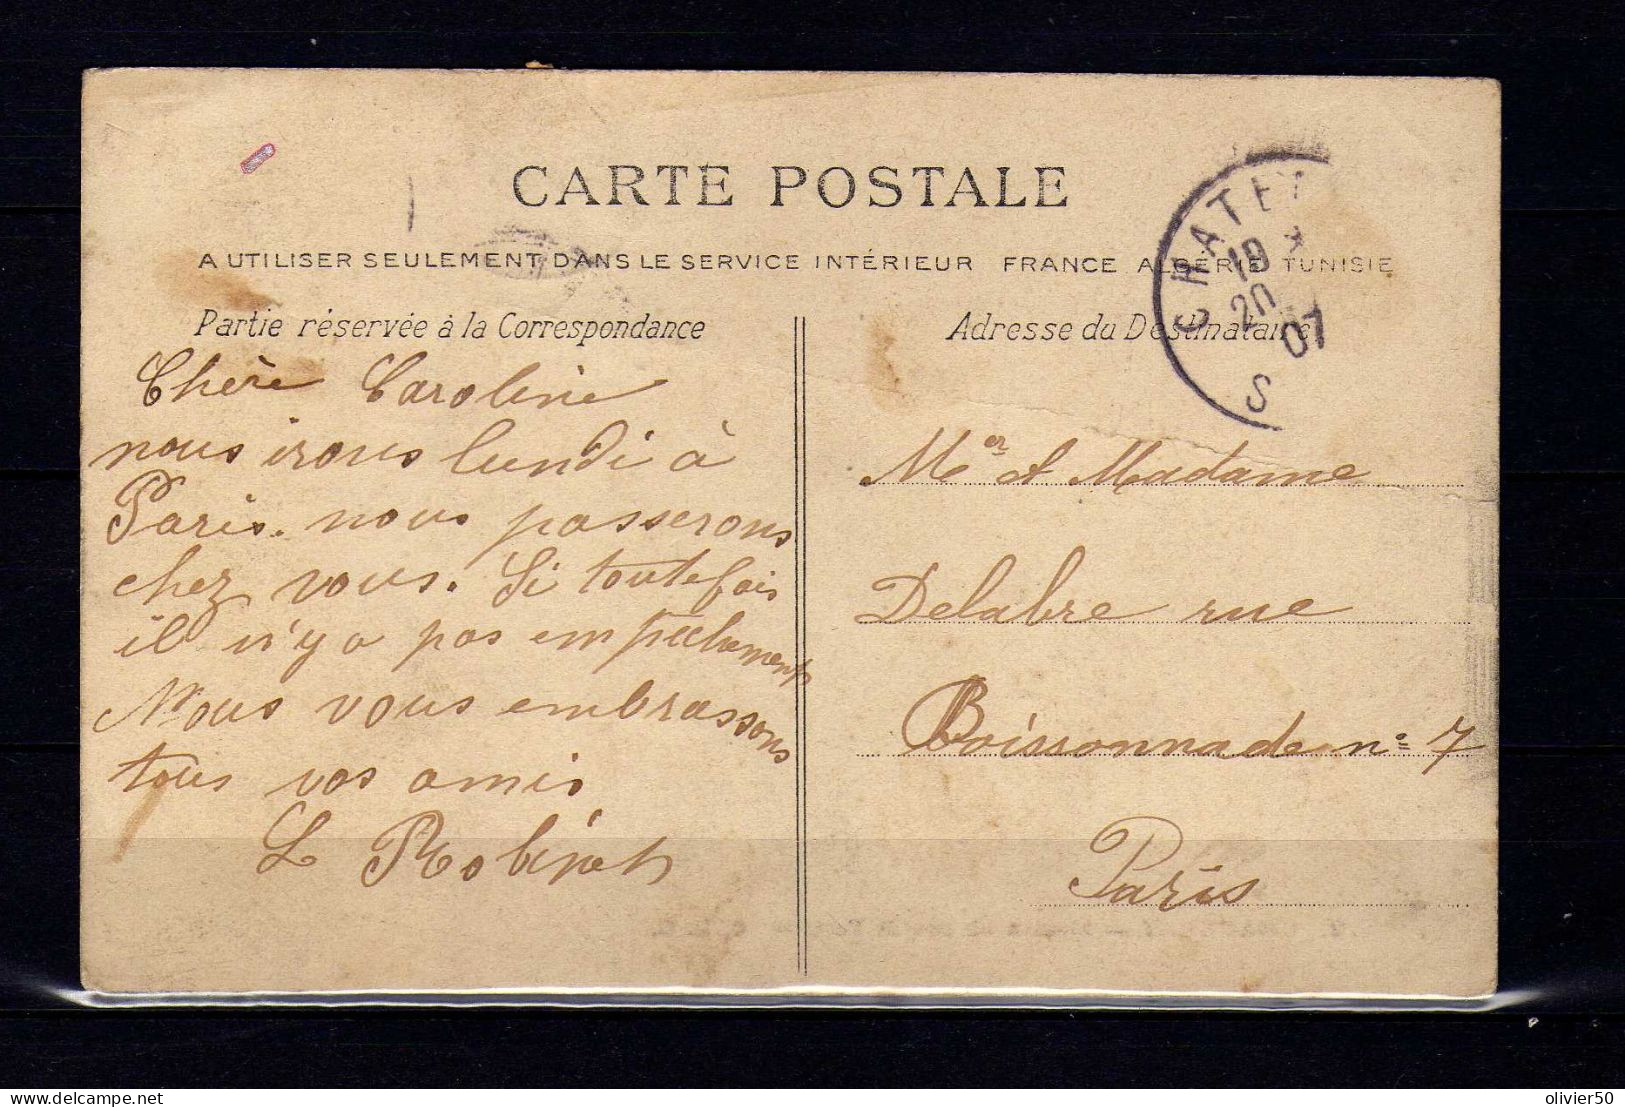 CARTE POSTALE
A UTILISER SEULEMENT DANS LE SERVICE INTÉRIEUR FRANCE ALGÉRIE TUNISIE
Partie réservée à la Correspondance
Chère Caroline
nous irons lundi à
Paris. nous passerons
chez vous. Si toutefois
il n'y a pas empêchement
Nous vous embrassons
tous vos amis
L Robinet
Adresse du Destinataire
CHATEY
19
20
07
S
Mer et Madame
Delabre rue
Boissonnade no 7
Paris
olivier50